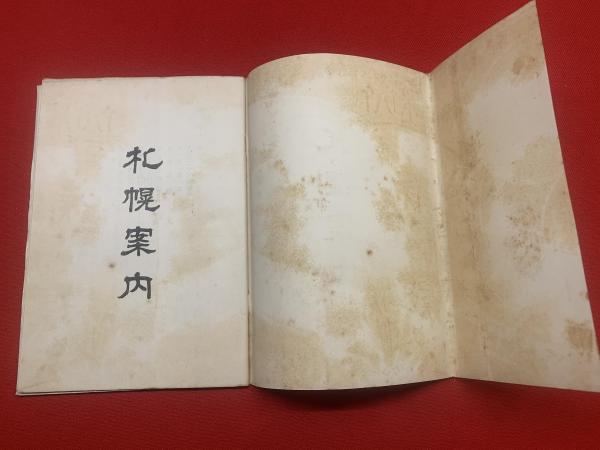 札幌案内